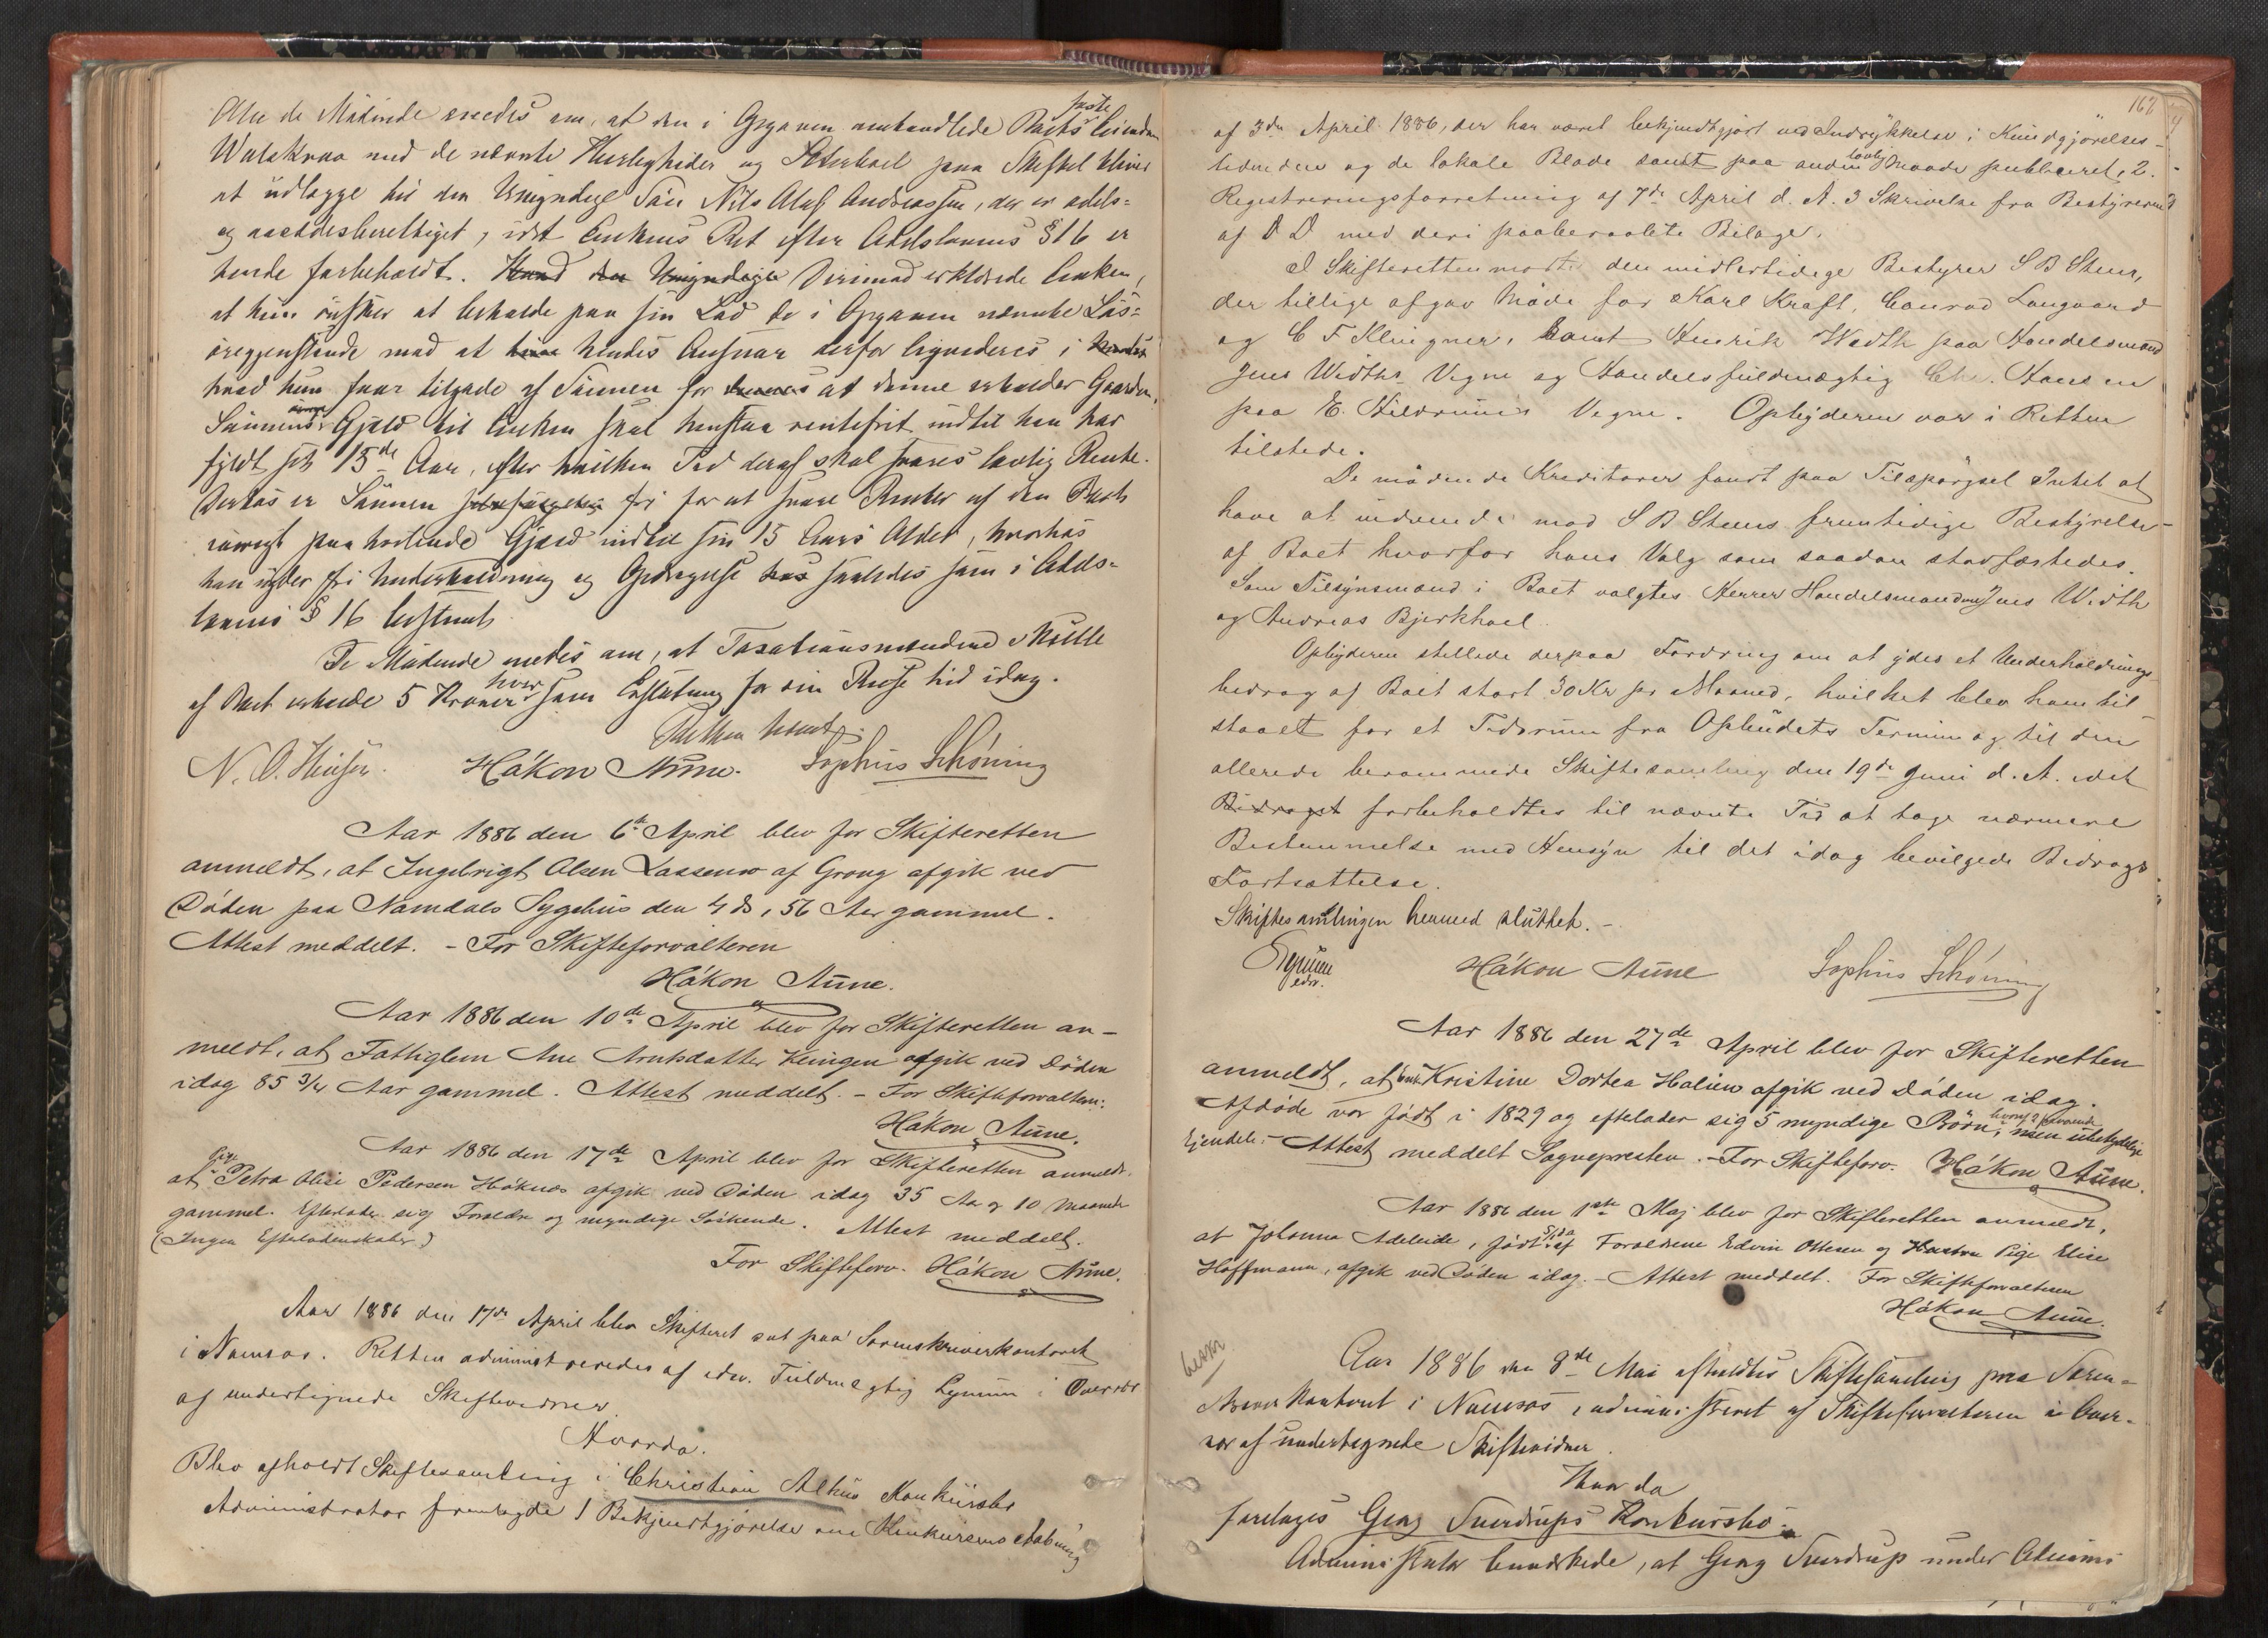 Alle de Mødende enedes om, at den i Opgaven ombandlede Boets faste Eiendom
Walskraa med de nævnte Herligheder og Stervboel paa Skiftet bliver
at udlægge til den Umyndige Søn Nils Oluf Andreassen, der er odels-
og aasædesberettiget, idet Enkens Ret efter Odelslovens § 16 er
hende forbeholdt. Hvad den Umyndige Derimod erklærede Enken,
at hun ønsker at beholde paa sin Lod de i Opgaven nævnte Løs-
øregjenstande mod at hendes Ansvar derfor ligvideres i
hvad hun faar tilgode af Sønnen for at denne erholder Gaarden.
Sønnens Gjæld til Enken skal henstaa rentefrit indtil han har
fyldt sit 15de Aar, efter hvilken Tid deraf skal svares lovlig Rente.
Derhos er Sønnen fri for at svare Renter af den Boet
iøvrigt paahvilende Gjæld indtil sin 15 Aars Alder, hvorhos
han nyder fri Underholdning og Opdragelse saaledes som i Odels-
lovens § 16 bestemt
De Mødende enedes om, at Taxationsmændene skulle
af Boet erholde 5 Kroner hver som Erstatning for sin Reise hid idag.
Retten hævet.
N. O. Hansen. Håkon Aune. Sophus Schøning
Aar 1886 den 6te April blev for Skifteretten
anmeldt, at Ingebrigt Olsen Lassemo af Grong afgik ved
Døden paa Namdals Sygehus den 4 ds, 56 Aar gammel.
Attest meddelt. - For Skifteforvalteren
Håkon Aune.
Aar 1886 den 10de April blev for Skifteretten an-
meldt, at Fattiglem Ane Arntsdatter Klingen afgik ved Døden
idag 85 3/4 Aar gammel. Attest meddelt. - For Skifteforvalteren:
Håkon Aune.
Aar 1886 den 17de April blev for Skifteretten anmeldt
at Pige Petra Olise Pedersen Høknes afgik ved Døden idag 35 Aar og 10 Maaneder
gammel. Efterlader sig Forældre og myndige Søskende. Attest meddelt.
(Ingen Efterladenskaber)
For Skifteforv. Håkon Aune.
Aar 1886 den 17de April blev Skifteret sat paa Sorenskriverkontoret
i Namsos. Retten administreredes af edsv. Fuldmægtig Lynum i Overvær
af undertegnede Skiftevidner
Hvorda.
Blev afholdt Skiftesamling i Christian Alhus Konkursbo
Administrator fremlagde 1 Bekjendtgjørelse om Konkursens Aabning
162
af 3die April 1886, der har været bekjendtgjort ved Indrykkelse i Kundgjørelses-
tidenden og de lokale Blade samt paa anden lovlig Maade publiceret, 2.
Registreringsforretning af 7de April d. A. 3 Skrivelse fra Bestyreren
af D D med deri paaberaabte Bilage.
I Skifteretten mødte den midlertidige Bestyrer S B Steen,
der tillige afgav Møde for Karl Kraft, Conrad Langaard
og C F Klingner, samt Henrik Width paa Handelsmand
Jens Widths Vegne og Handelsfuldmægtig Chr. Hansen
paa E. Hildrums Vegne. Opbyderen var i Retten
tilstede.
De mødende Kreditorer fandt paa Tilspørgsel Intet at
have at indvende mod S B Steens fremtidige Bestyrelse
af Boet hvorfor hans Valg som saadan stadfæstedes.
Som Tilsynsmænd i Boet valgtes Herrer Handelsmand Jens Width
og Andreas Bjerkhoel.
Opbyderen stillede derpaa Fordring om at ydes et Underholdnings-
bedrag af Boet stort 30 Kr pr Maaned, hvilket blev ham til-
staaet for et Tidsrum fra Opbudets Termin og til den
allerede berammede Skiftesamling den 19de Juni d. A. idet
Bidraget forbeholdtes til nævnte Tid at tage nærmere
Bestemmelse med Hensyn til det idag bevilgede Bidrags
Fortsættelse.
Skiftesamlingen hermed sluttet. -
Lynum
edsv.
Håkon Aune Sophus Schøning
Aar 1886 den 27de April blev for Skifteretten
anmeldt, at Enke Kristine Dortea Halien afgik ved Døden idag.
Afdøde var født i 1829 og efterlader sig 5 myndige Børn, hvoraf 2 fraværende men ubetydelige
Ejendele. - Attest meddelt Sognepresten. - For Skifteforv. Håkon Aune.
Aar 1886 den 1ste Maj blev for Skifteretten anmeldt,
at Johanna Adeleide, født af Forældrene Edvin Ottesen og Hustru Pige Elise
Hoffmann, afgik ved Døden idag. - Attest meddelt. For Skifteforvalteren
Håkon Aune.
Aar 1886 den 8de Mai afholdtes Skiftesamling paa Soren-
skriverkontoret i Namsos, administreret af Skifteforvalteren i Over-
vær af undertegnede Skiftevidner.
Hvor da
foretages Georg Sverdrups Konkursbo.
Administrator bemærkede, at Georg Sverdrup under